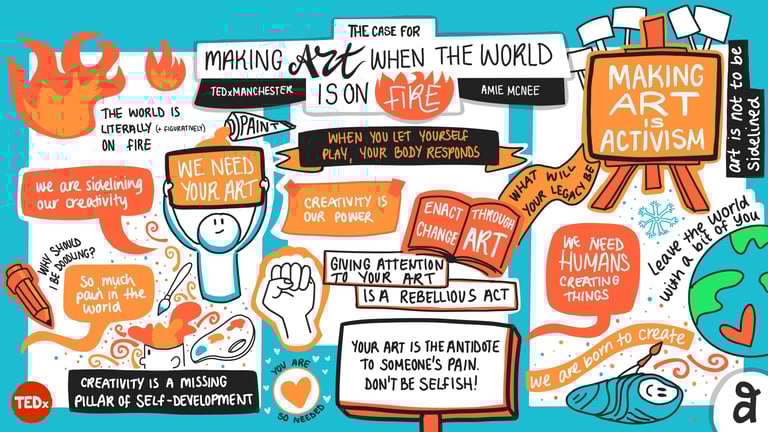 THE CASE FOR
MAKING Art WHEN THE WORLD
IS ON FIRE
TEDxMANCHESTER
AMIE MCNEE
THE WORLD IS
LITERALLY (+ FIGURATIVELY)
ON FIRE
PAINT
WE NEED
YOUR ART
We are sidelining
our creativity
WHY SHOULD
I BE DOODLING?
So much
pain in the
world
CREATIVITY IS A MISSING
PILLAR OF SELF-DEVELOPMENT
TEDx
WHEN YOU LET YOURSELF
PLAY, YOUR BODY RESPONDS
CREATIVITY IS
OUR POWER
ENACT
CHANGE
THROUGH
ART
WHAT WILL
YOUR LEGACY BE
GIVING ATTENTION
TO YOUR ART
IS A REBELLIOUS ACT
YOU ARE
SO NEEDED
YOUR ART IS THE ANTIDOTE
TO SOMEONE'S PAIN.
DON'T BE SELFISH!
MAKING
ART
IS
ACTIVISM
art is not to be
sidelined
WE NEED
HUMANS
CREATING
THINGS
Leave the world
with a bit of you
we are born to create